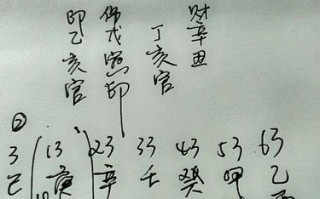 财辛丑
丁亥官
伤戊寅印
印乙亥官
②
3 13 23 33 43 53 63
己 庚 辛 壬 癸 甲 乙